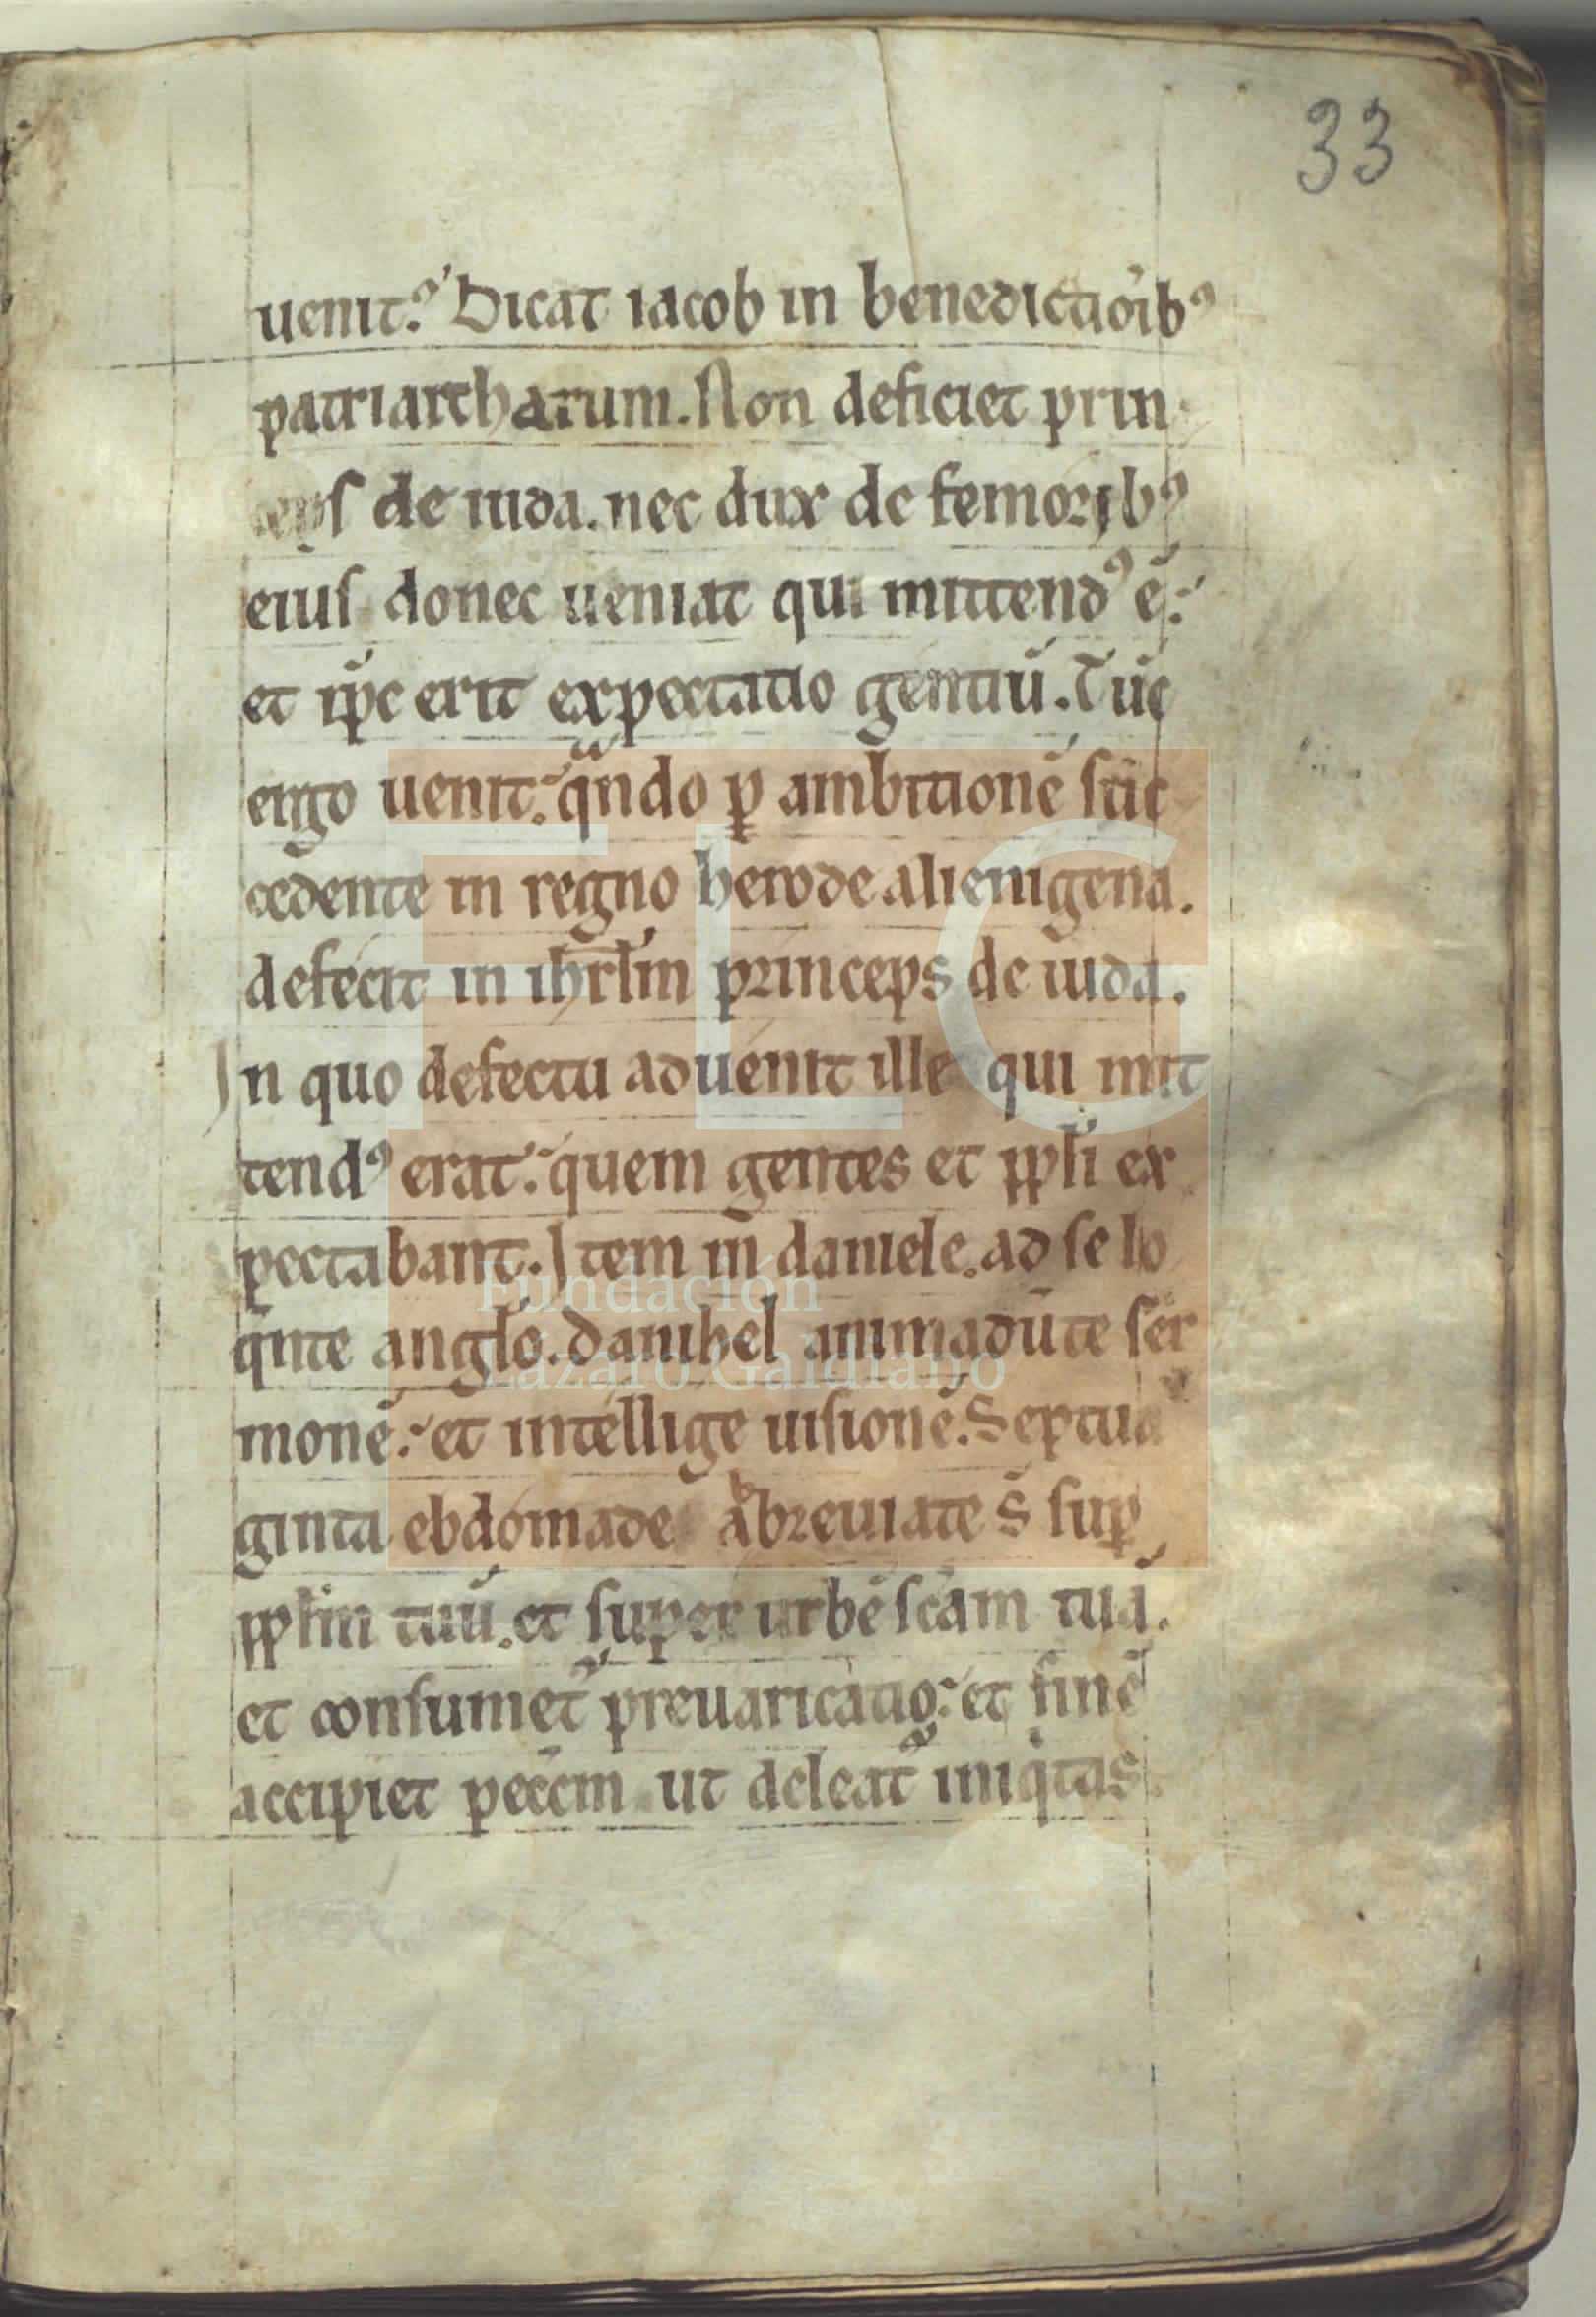 33
uenit? Dicat iacob in benedictio̅ib⁹
patriarcharum. Non deficiet prin
ceps de iuda. nec dux de femorib⁹
eius donec ueniat qui mittend⁹ e̅:
et ip̅e erit expectatio gentiu̅. Tu̅c
ergo uenit. qͣndo ꝑ ambitione̅ suc
cedente in regno herode alienigena.
defecit in ihrl̅m princeps de iuda.
In quo defectu aduenit ille qui mit
tend⁹ erat. quem gentes et pp̅li ex
pectabant. Item in daniele. ad se lo
q̅nte angl̅o. danihel animadu̅te ser
mone̅: et intellige uisione̅. Septua
ginta ebdomade abbreuiate s̅ sup̲
pp̅lm tuu̅. et super urbe̅ sc̅am tua̅.
et consumet᷑ preuaricatio: et fine̅
accipiet pecc̅m ut deleat᷑ iniqͥtas
FLG
Fundación
Lázaro Galdiano